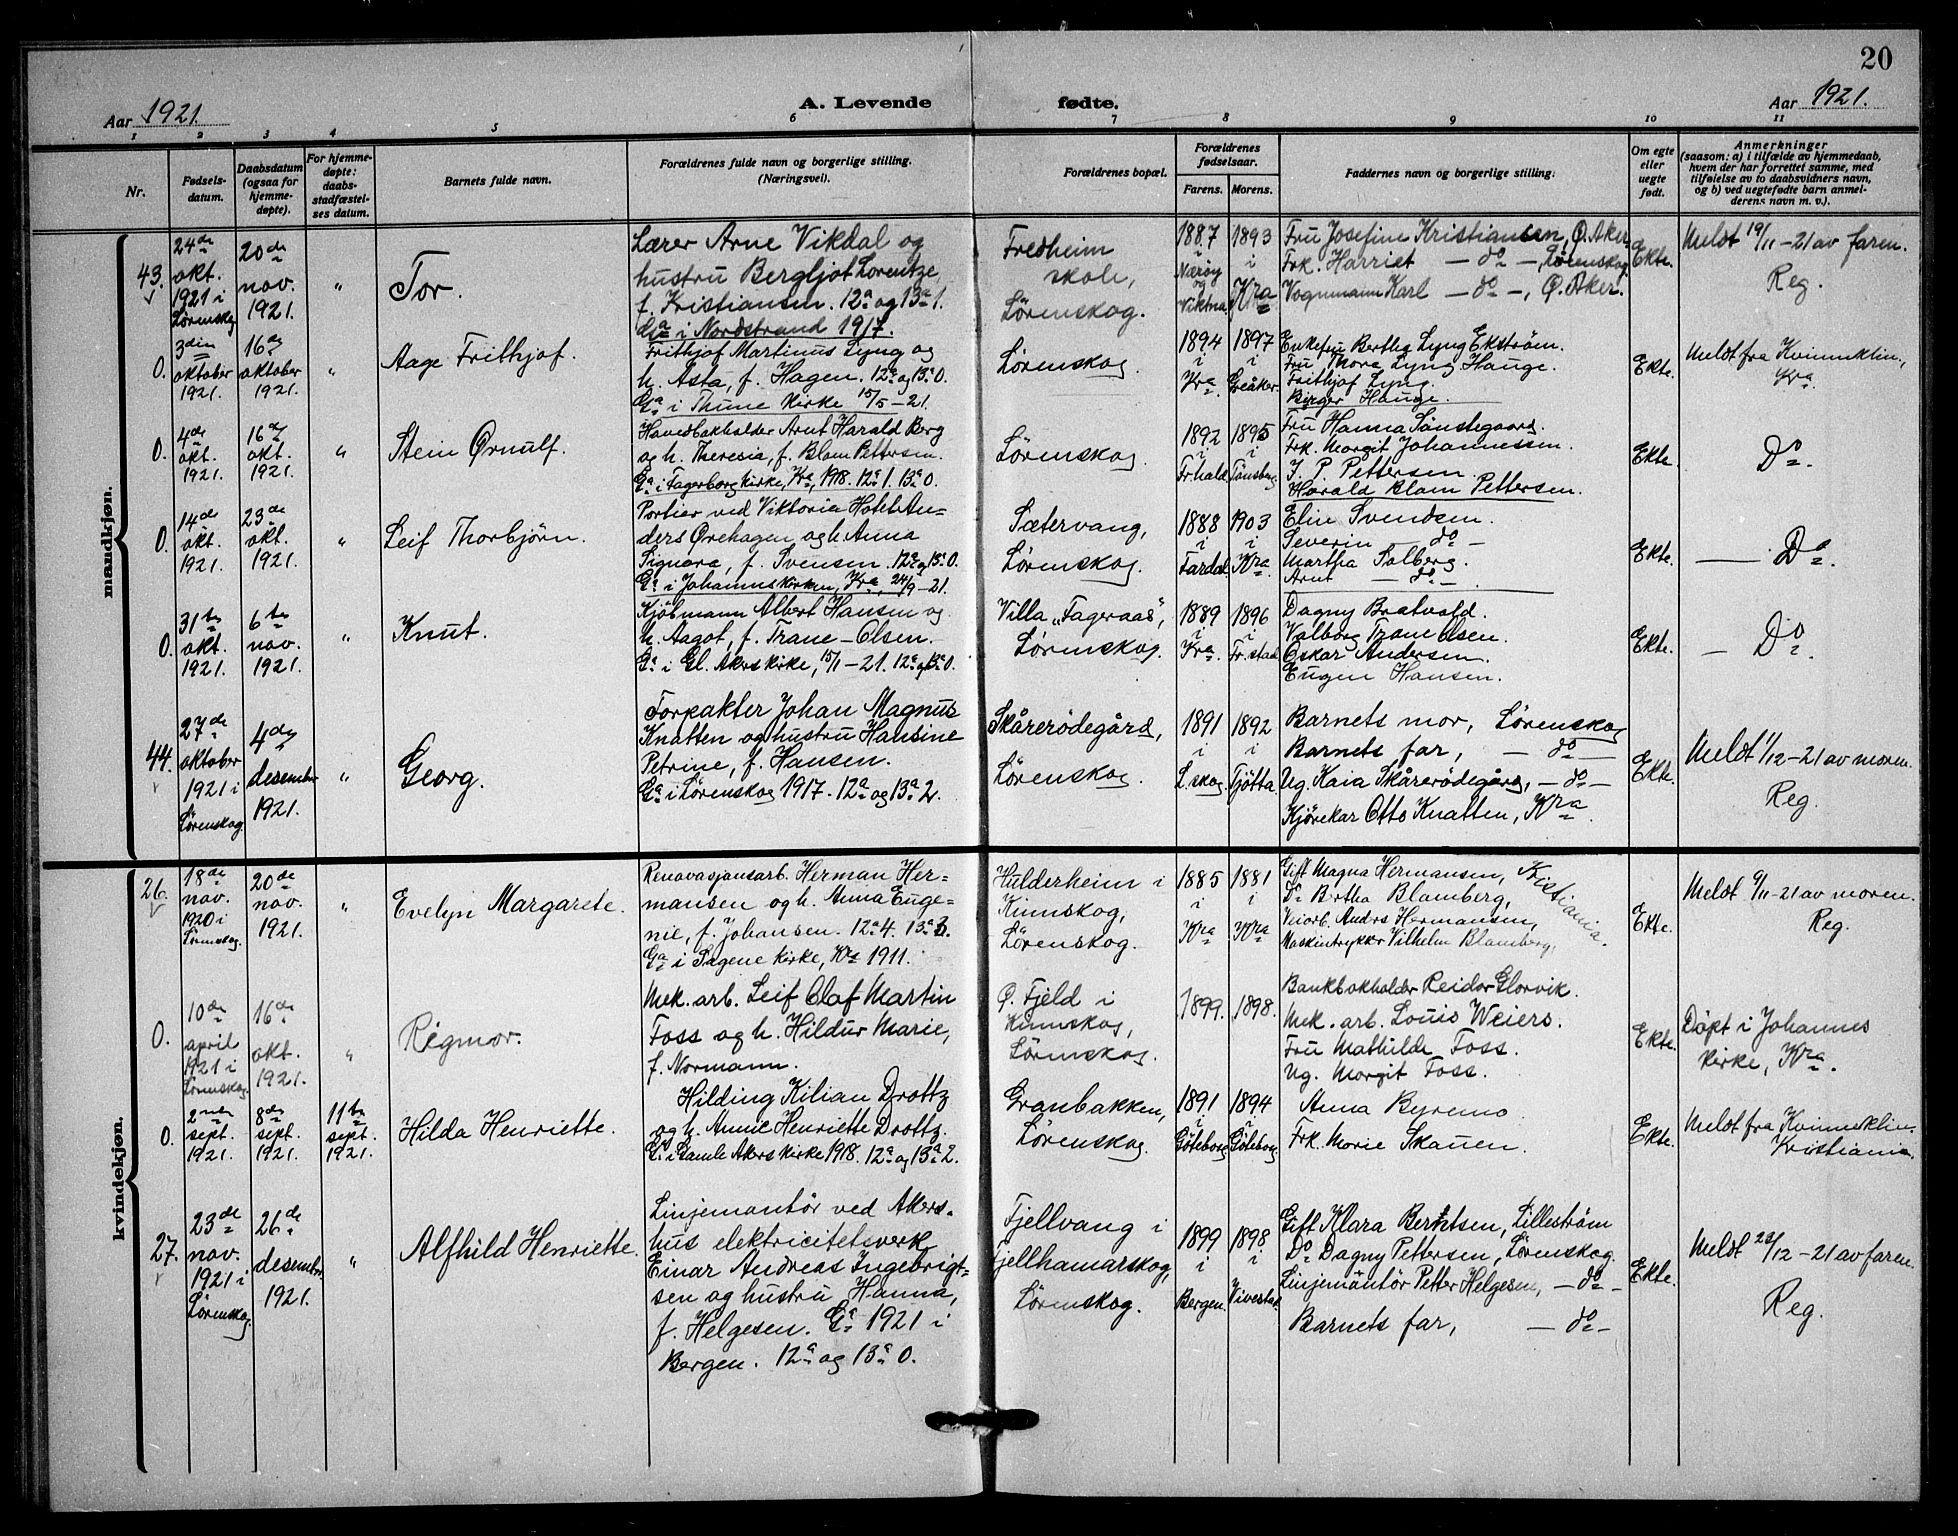 20
Aar 1921.
A. Levende fødte.
Aar 1921.
1 2 3 4 5 6 7 8 9 10 11
Nr.
Fødsels-
datum.
Daabsdatum
(ogsaa for
hjemme-
døpte).
For hjemme-
døpte:
daabs-
stadfæstel-
ses datum.
Barnets fulde navn.
Forældrenes fulde navn og borgerlige stilling.
(Næringsvei).
Forældrenes bopæl.
Forældrenes
fødselsaar.
Farens. Morens.
Faddernes navn og borgerlige stilling:
Om egte
eller
uegte
født.
Anmerkninger
(saasom: a) i tilfælde av hjemmedaab,
hvem der har forrettet samme, med
tilføielse av to daabsvidners navn,
og b) ved uegtefødte barn anmel-
derens navn m. v.).
mandkjøn.
43.
24de
okt.
1921 i
Lörenskog
20de
nov.
1921.
"
Tor.
Lærer Arne Vikdal og
hustru Bergljot Lorentze
f. Kristiansen. 12a og 13a 1.
Ga i Nordstrand 1917.
Fredheim
skole,
Lörenskog.
1887
Nærøy
og
Vikna
1893
i
Kra
Fru Josefine Kristiansen, Ø. Aker
Frk. Harriet — do —, Lörenskog
Vognmann Karl — do —, Ø. Aker.
Ekte.
Meldt 19/11-21 av faren.
Reg.
0.
3die
oktober
1921.
16de
oktober
1921.
"
Aage Frithjof.
Frithjof Martinus Lyng og
h. Asta, f. Hagen. 12a og 13a 0.
Ga i Thune kirke 15/5-21.
Lörenskog.
1894
i
Kra
1897
i
Greåker.
Enkefru Bertha Lyng Ekström.
Fru Thora Lyng Hauge.
Frithjof Lyng.
Birger Hauge.
Ekte.
Meldt fra Kvinneklin.,
Kra.
0.
4de
okt.
1921.
16de
okt.
1921.
"
Stein Ørnulf.
Hovedbokholder Arnt Harald Berg
og h. Theresia, f. Blom Pettersen.
Ga i Fagerborg kirke, Kra, 1918. 12a 1. 13a 0.
Lörenskog.
1892
i
Fr.hald
1895
i
Tönsberg
Fru Hanna Sönstegaard.
Frk. Margit Johannessen.
J. P. Pettersen.
Harald Blom Pettersen.
Ekte.
Do.
0.
14de
okt.
1921.
23de
okt.
1921.
"
Leif Thorbjörn.
Portier ved Viktoria Hotel An-
ders Ørehagen og h. Anna
Signora, f. Svensen. 12a og 13a 0.
Ga i Johanneskirken, Kra, 24/9-21.
Sætervang,
Lörenskog.
1888
i
Fardal
1903
i
Kra.
Elin Svendsen.
Severin — do —
Martha Solberg.
Arnt — do —
Ekte.
— Do.
0.
31te
okt.
1921.
6te
nov.
1921.
"
Knut.
Kjöbmann Albert Hansen og
h. Aagot, f. Trane-Olsen.
Ga i Gl. Akers kirke, 15/1-21. 12a og 13a 0.
Villa „Fageraas",
Lörenskog.
1889
i
Kra.
1896
i
Fr.stad
Dagny Bratvold.
Valborg Trane Olsen.
Oskar Andersen.
Eugen Hansen.
Ekte.
— Do.
44.
27de
oktober
1921 i
Lörenskog
4de
desember
1921.
"
Georg.
Forpakter Johan Magnus
Knatten og hustru Hansine
Petrine, f. Hansen.
Ga i Lörenskog 1917. 12a og 13a 2.
Skårerödegård,
Lörenskog.
1891
i
L.skog
1892
i
Tjötta.
Barnets mor, Lörenskog
Barnets far, — do —
Ug. Kaia Skårerödegård, — do —
Kjörekar Otto Knatten, Kra.
Ekte.
Meldt 1/12-21 av moren.
Reg.
kvindekjøn.
26.
18de
nov.
1920 i
Lörenskog.
20de
nov.
1921.
"
Evelyn Margarete.
Renovasjonsarb. Herman Her-
mansen og h. Anna Euge-
nie, f. Johansen. 12a 4. 13a 3.
Ga i Sagene kirke, Kra 1911.
Hulderheim i
Kinnskog,
Lörenskog.
1885
i
Kra
1881
i
Kra
Gift Magna Hermansen,
Do Bertha Blomberg,
Veiarb. Andrs Hermansen,
Maskintrykker Vilhelm Blomberg,
Kristiania.
Ekte.
Meldt 9/11-21 av moren.
Reg.
0.
10de
april
1921 i
Lörenskog.
16de
okt.
1921.
"
Rigmor.
Mek. arb. Leif Olaf Martin
Foss og h. Hildur Marie,
f. Normann.
Ø. Fjeld i
Kinnskog,
Lörenskog.
1899.
1898.
Bankbokholder Reidar Glorvik.
Mek. arb. Louis Weiers.
Fru Mathilde Foss.
Ug. Margit Foss.
Ekte.
Döpt i Johannes
kirke, Kra.
0.
2nen
sept.
1921.
8de
sept.
1921.
11te
sept.
1921.
Hilda Henriette.
Hilding Kilian Drottz
og h. Annie Henriette Drottz.
Ga i Gamle Akers kirke 1918. 12a og 13a 2.
Granbakken,
Lörenskog.
1891
i
Göteborg
1894
i
Göteborg.
Anna Byremo.
Frk. Marie Skauen.
Ekte.
Meldt fra Kvinneklin.
Kristiania.
27.
23de
nov.
1921 i
Lörenskog.
26de
desember
1921.
"
Alfhild Henriette.
Linjemontör ved Akers-
hus elektricitetsverk
Einar Andreas Ingebrigt-
sen og hustru Hanna,
f. Helgesen. Ga 1921 i
Bergen. 12a og 13a 0.
Fjellvang i
Fjellhamarskog,
Lörenskog.
1899
i
Bergen.
1898.
i
Vivestad.
Gift Klara Berntsen, Lilleström
Do Dagny Pettersen, Lörenskog.
Linjemontör Petter Helgesen, — do —
Barnets far, — do —
Ekte.
Meldt 22/12-21 av faren.
Reg.